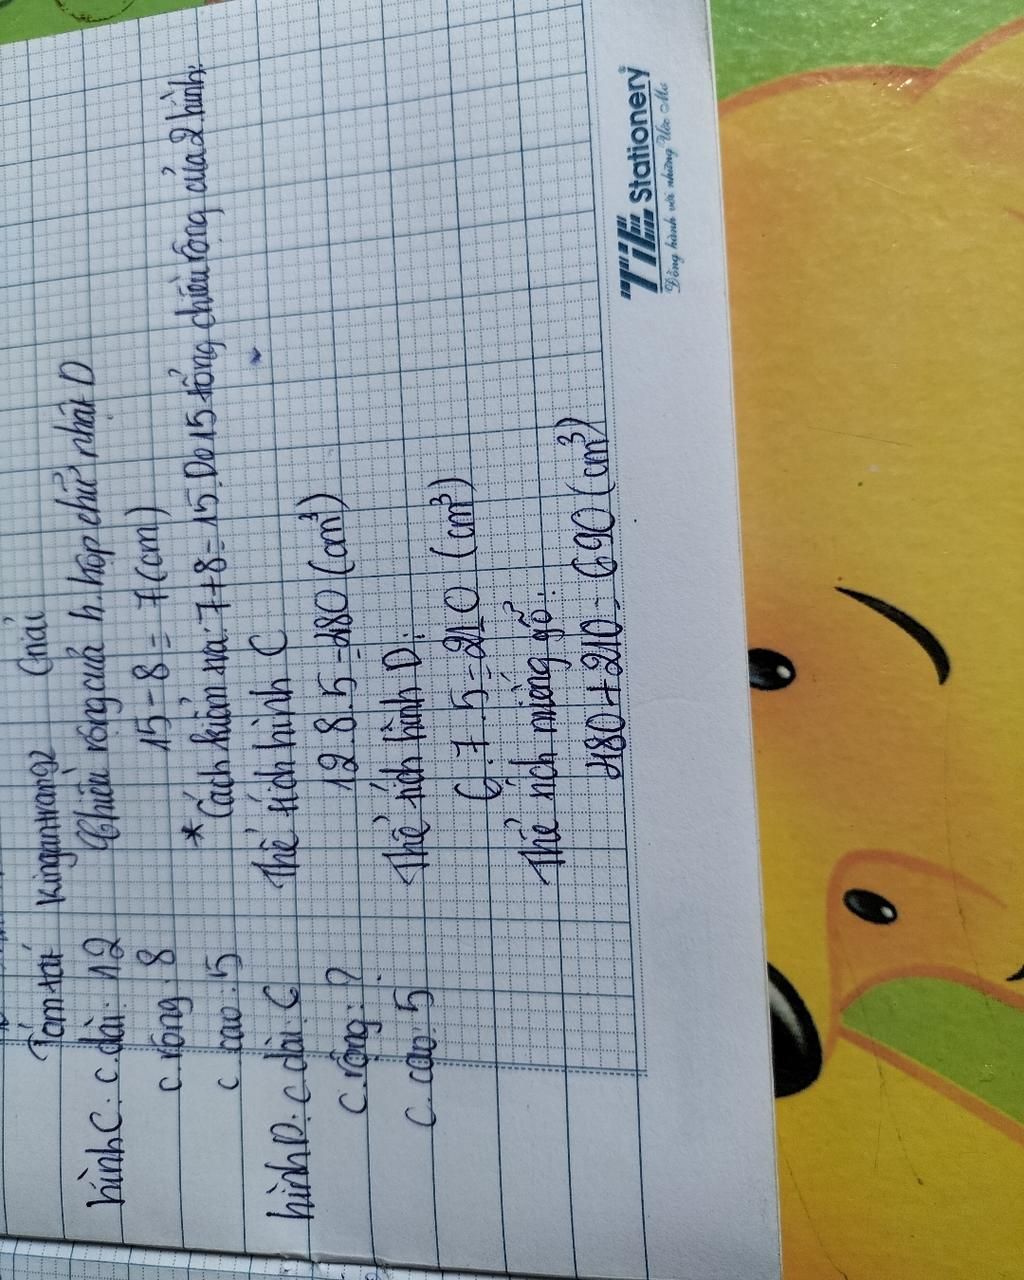 Tóm tắt Giải
hình C: c dài: 12
c rộng: 8
c cao: 5
hình D: c dài: 6
c. rộng: ?
c. cao: 5
Chiều rộng của h.hộp chữ nhật D
15 - 8 = 7 (cm)
* Cách kiểm tra: 7 + 8 = 15. Do 15 tổng chiều rộng của 2 hình.
Thể tích hình C
12.8.5 = 480 (cm³)
Thể tích hình D:
6.7.5 = 210 (cm³)
Thể tích miếng gỗ:
480 + 210 = 690 (cm³)
TiTi Stationery
Đồng hành với những Ước Mơ